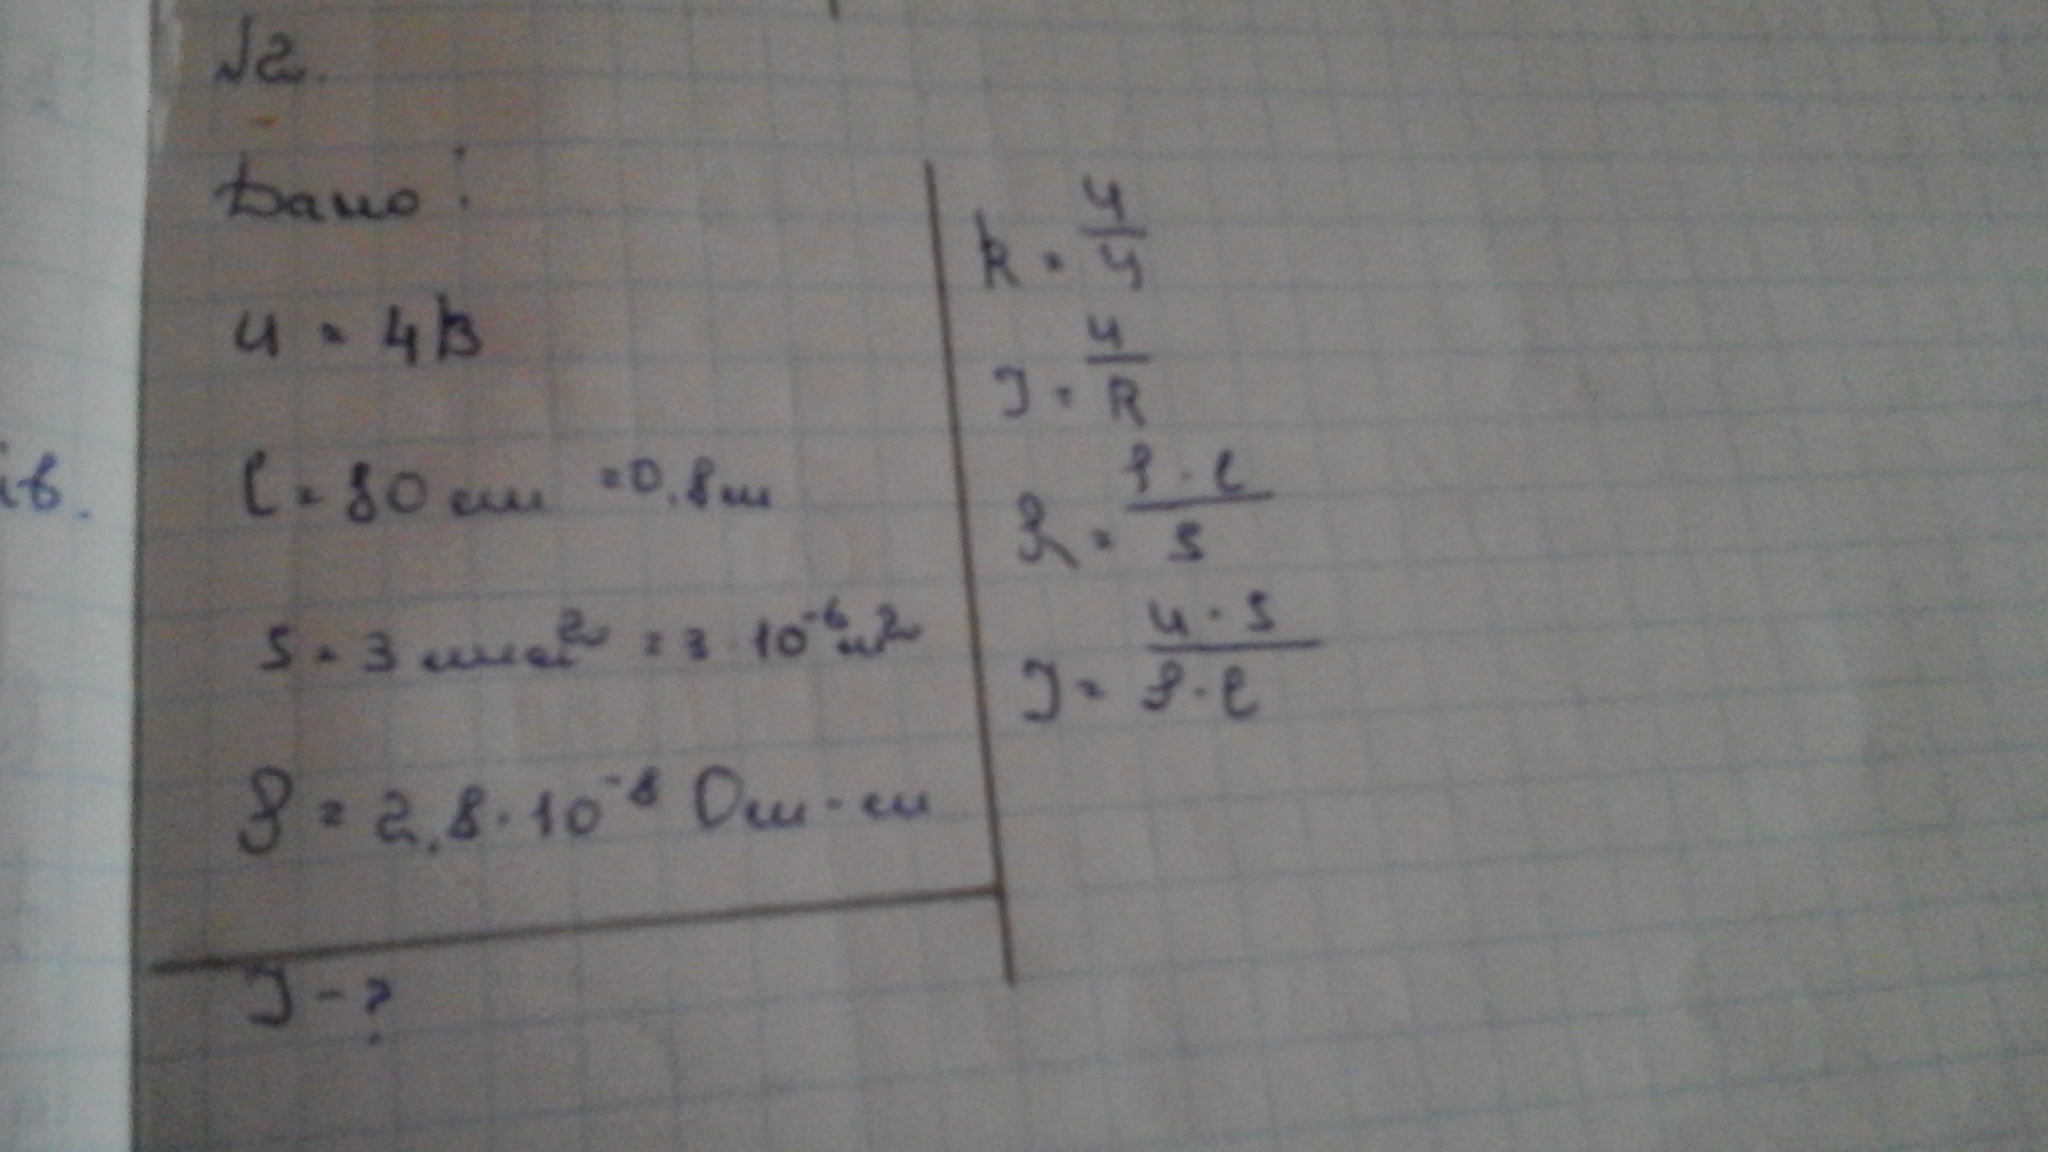 №2.
Дано:
U = 4В
l = 80 см = 0,8м
S = 3 мм² = 3 · 10⁻⁶ м²
ρ = 2,8 · 10⁻⁸ Ом · м
I - ?
R = U/I
I = U/R
R = ρ · l / S
I = U · S / ρ · l
ів.